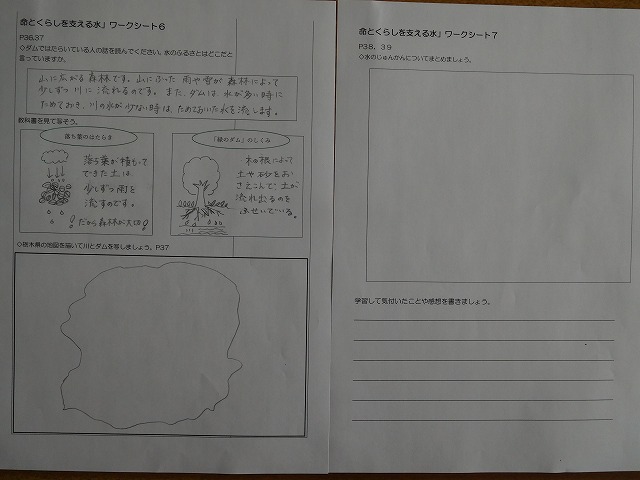 命とくらしを支える水」ワークシート6
P36,37
◇ダムではたらいている人の話を読んでください。水のふるさとはどこだと
言っていますか。
山に広がる森林です。山にふった雨や雪が森林によって
少しずつ川に流れるのです。また、ダムは水が多い時に
ためておき、川の水が少ない時は、ためておいた水を流します。
教科書を見て写そう。
落ち葉のはたらき
落ち葉が積もって
できた土は
少しずつ雨を
流すのです。
だから森林が大切!
「緑のダム」のしくみ
木の根によって
土や砂をお
さえこんで、土が
流れ出るのを
ふせいでいる。
◇栃木県の地図を描いて川とダムを写しましょう。P37
命とくらしを支える水」ワークシート7
P38，39
◇水のじゅんかんについてまとめましょう。
学習して気付いたことや感想を書きましょう。